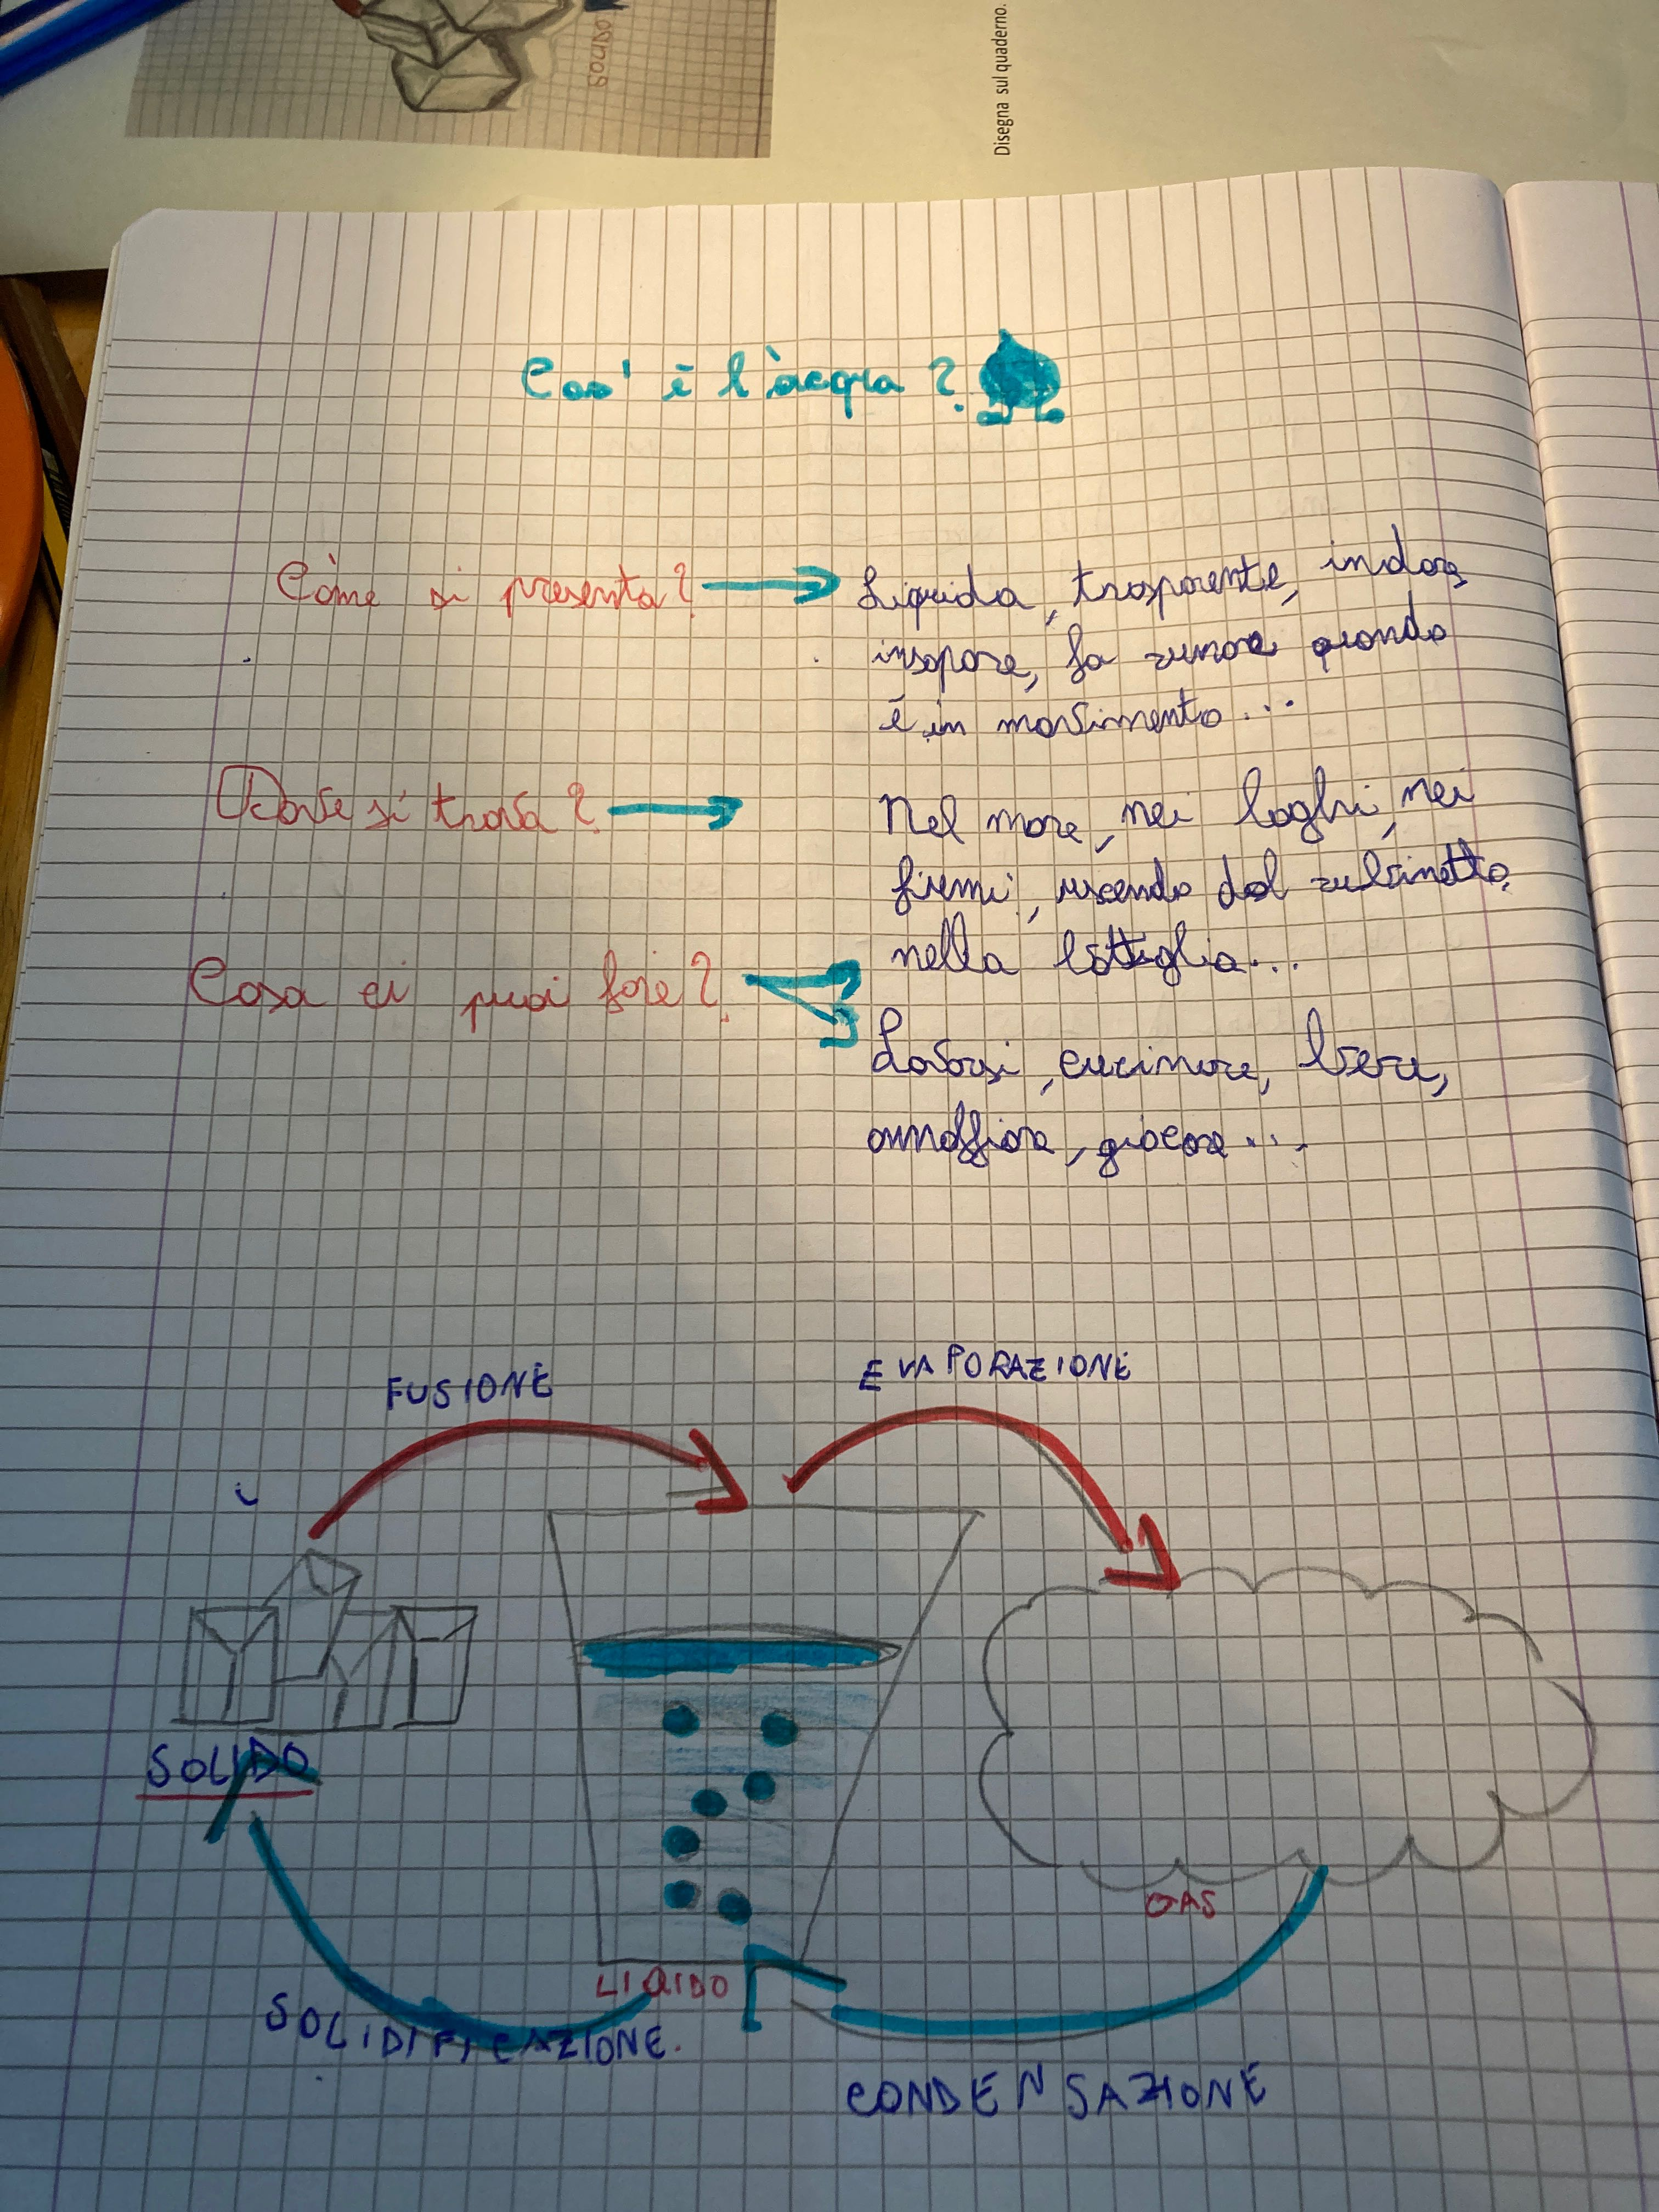 SOLIDO
Disegna sul quaderno.
Cos' è l'àcqua?
Còme si presenta?
Liquida, trasparente, indore,
insapore, fa rumore quando
è in movimento...
Dove si trova?
Nel mare, nei laghi, nei
fiumi, uscendo dal rubinetto,
nella bottiglia...
Cosa ci puoi fare?
Lavarsi, cucinare, bere,
annaffiare, giocare...
FUSIONE
EVAPORAZIONE
SOLIDO
GAS
LIQIDO
SOLIDIFICAZIONE.
CONDENSAZIONE